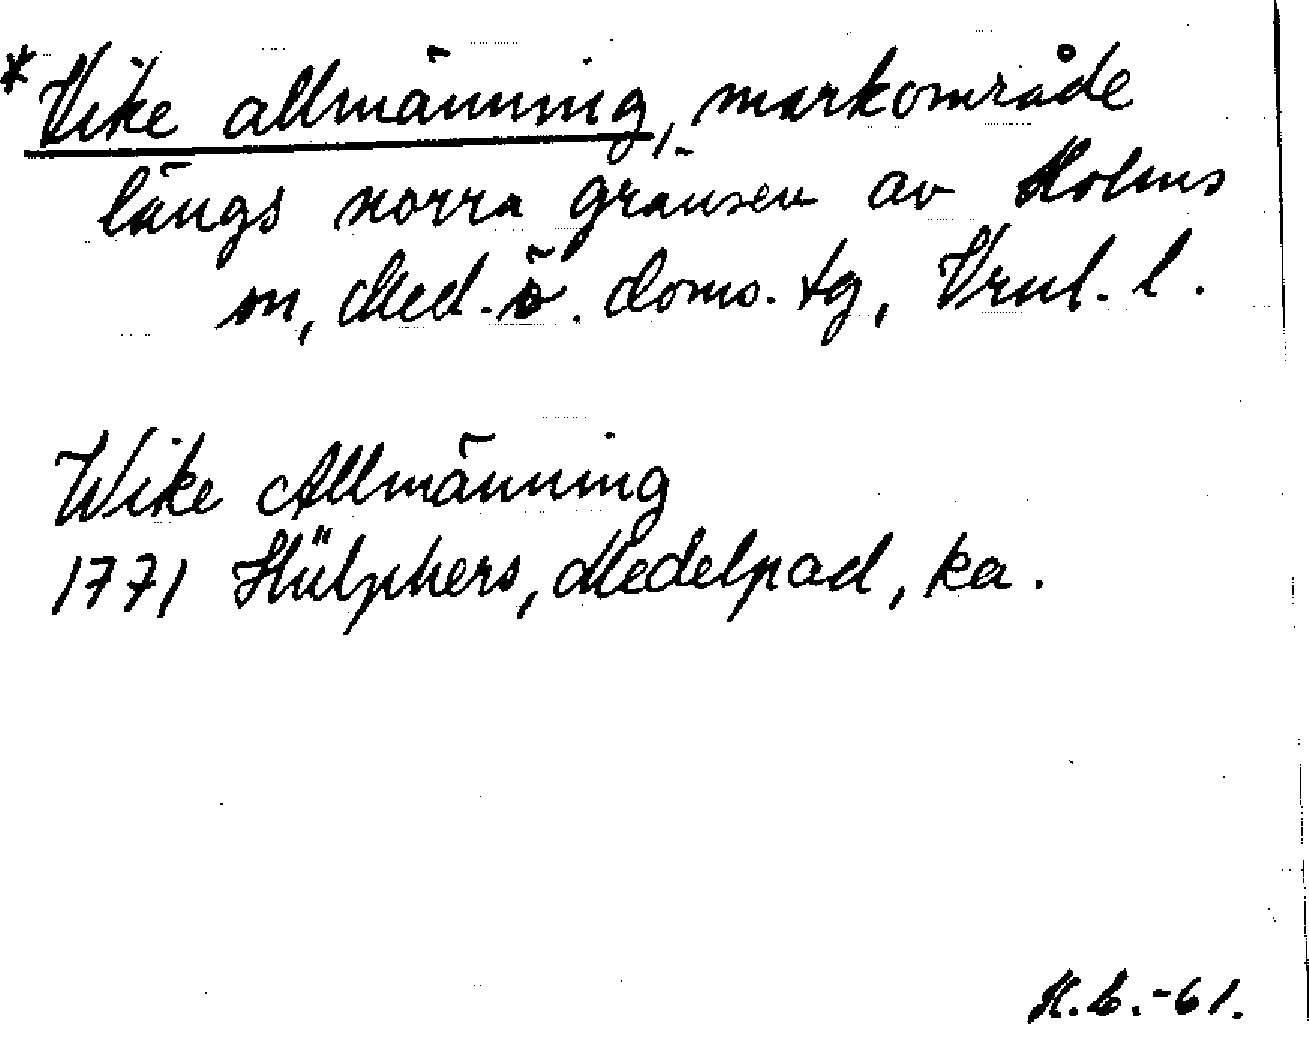 *Vike allmänning, markområde
längs norra gränsen av Holms
sn, Med. ö. doms. tg, Vrnl. l.
Wike Allmänning
1771 Hülphers, Medelpad, ka.
H.B.-61.